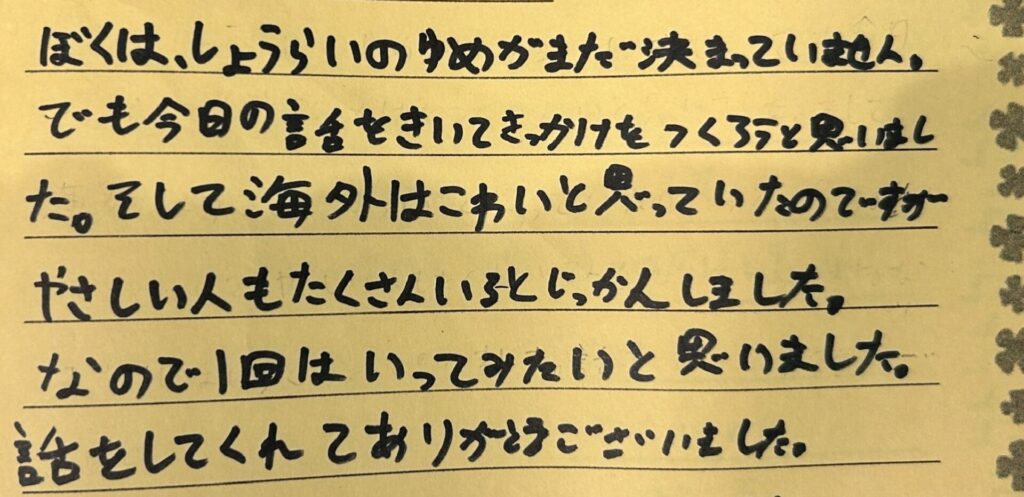 ぼくは、しょうらいのゆめがまだ決まっていません。
でも今日の話をきいてきっかけをつくろうと思いまし
た。そして海外はこわいと思っていたのですが
やさしい人もたくさんいるとじっかんしました。
なので1回はいってみたいと思いました。
話をしてくれてありがとうございました。